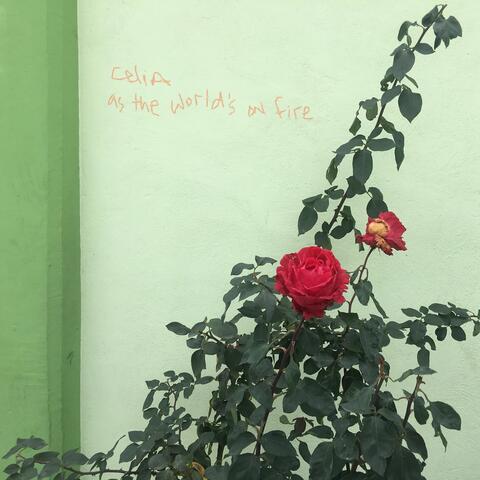 CeliA
as the world's on fire